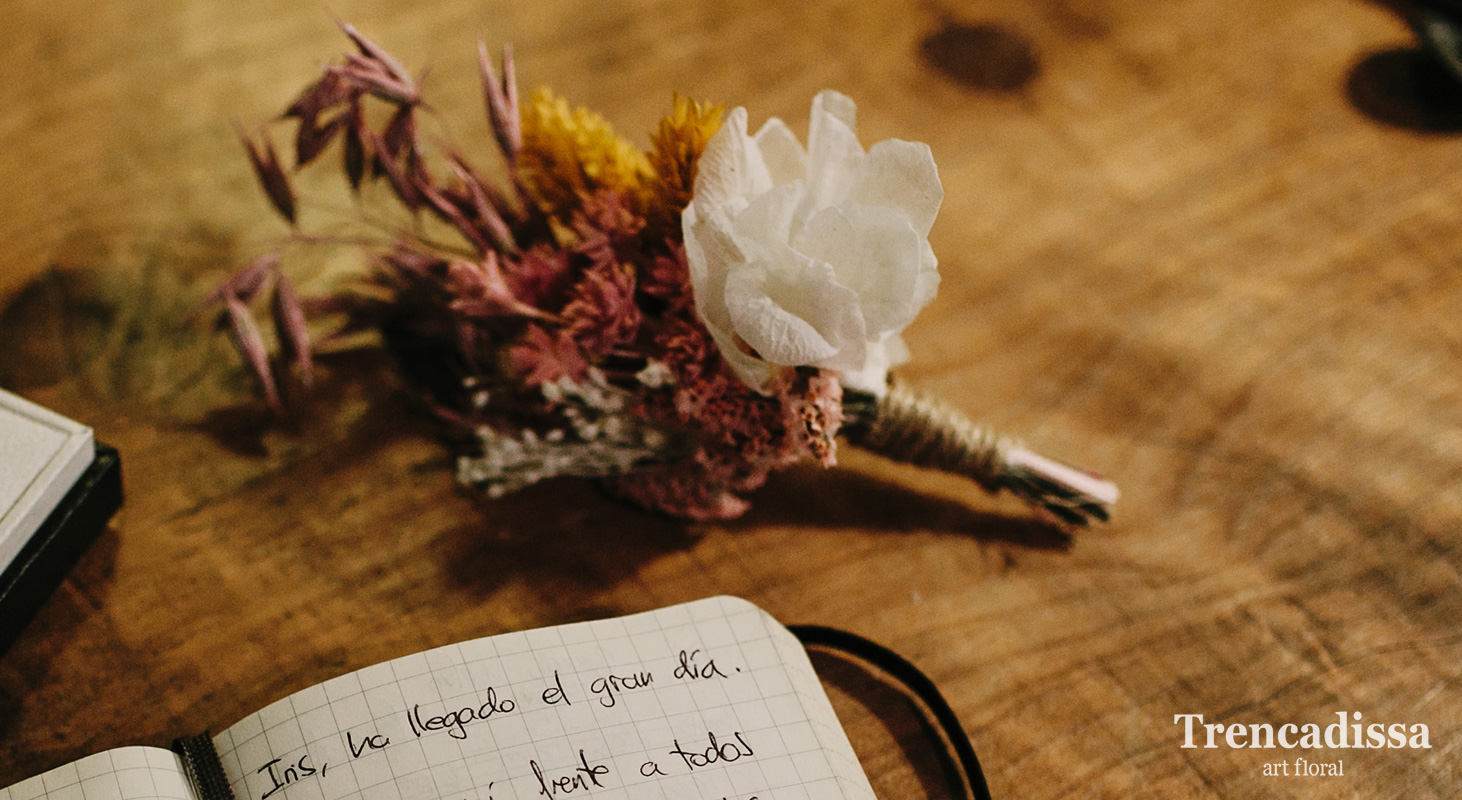 Iris, ha llegado el gran día.
frente a todos
Trencadissa
art floral